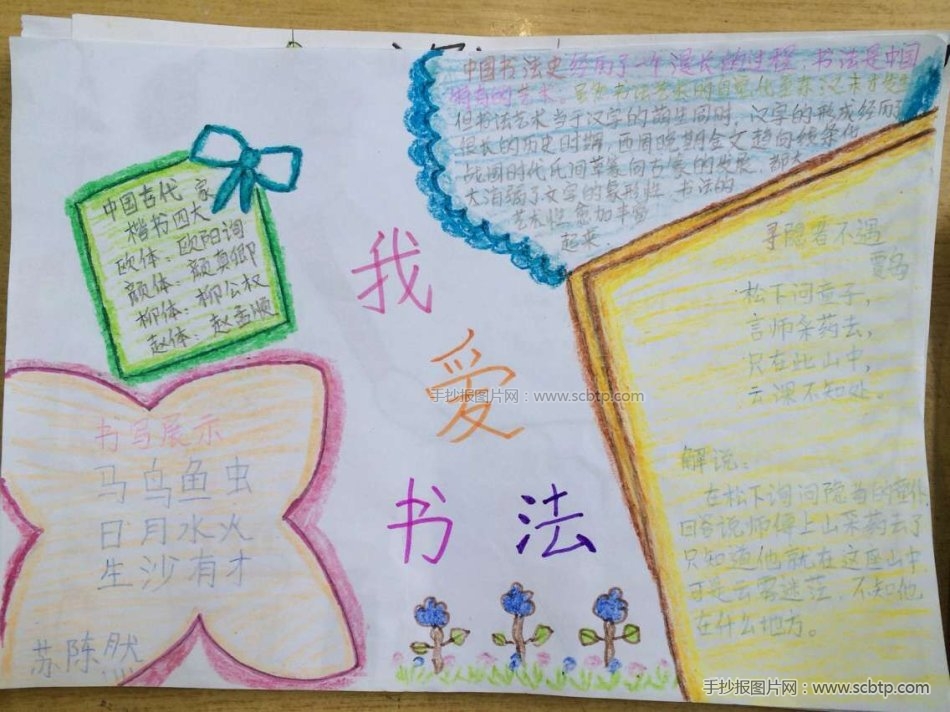 中国书法史经历了一个漫长的过程，书法是中国
特有的艺术。
但书法艺术当于汉字的萌生同时，汉字的形成经历了
很长的历史时期，西周晚期金文趋向线条化，
战国时代民间草篆向古隶的发展，都大
大消弱了文字的象形性，书法的
艺术性愈加丰富
起来.
中国古代 家
楷书四大
欧体：欧阳询
颜体：颜真卿
柳体：柳公权
赵体：赵孟頫
我
爱
书 法
书写展示
马鸟鱼虫
日月水火
生沙有才
苏陈然
寻隐者不遇
贾岛
松下问童子，
言师采药去，
只在此山中，
云深不知处。
解说：
在松下询问隐者的
回答说师傅上山采药去了
只知道他就在这座山中
可是云雾迷茫，不知他
在什么地方。
手抄报图片网：www.scbtp.com
手抄报图片网：www.scbtp.com